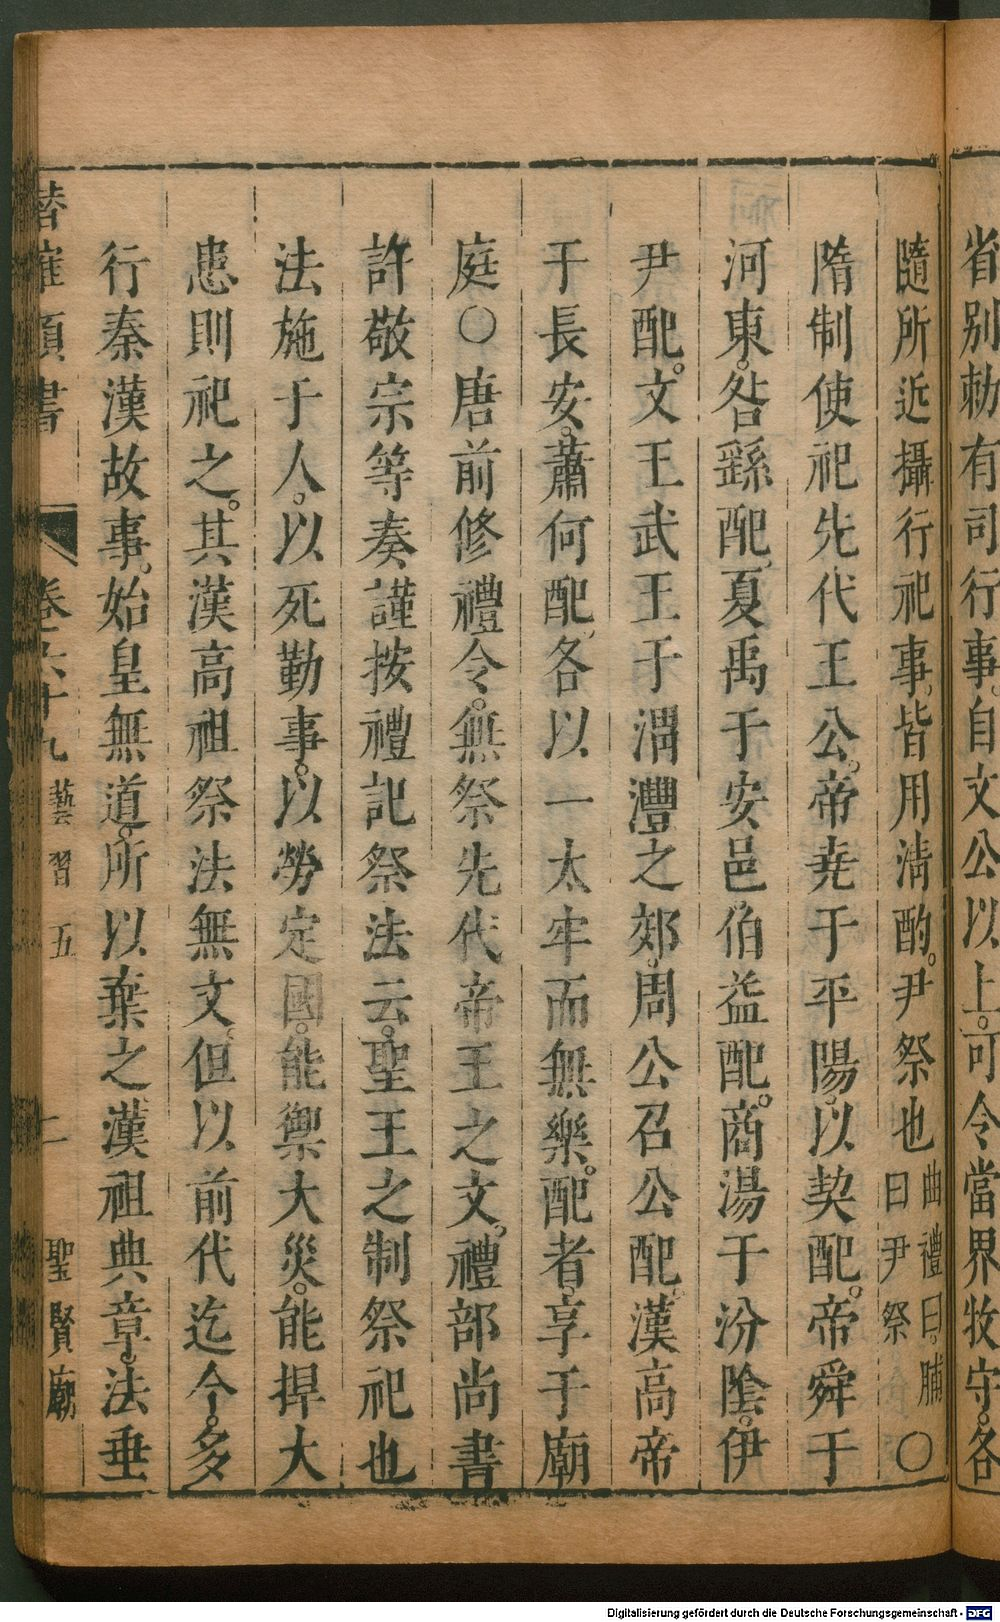 省別勅有司行事。自文公以上。可令當界牧守。各
隨所近攝行祀事。皆用清酌。尹祭也曲禮曰。脯曰尹祭〇
隋制使祀先代王公。帝尭于平陽。以契配。帝舜于
河東。咎繇配。夏禹于安邑。伯益配。商湯于汾陰。伊
尹配。文王武王于渭灃之郊。周公召公配。漢高帝
于長安。蕭何配。各以一太牢而無樂。配者享于廟
庭〇唐前修禮令。無祭先代帝王之文。禮部尚書
許敬宗等奏謹按禮記祭法云。聖王之制祭祀也
法施于人。以死勤事。以勞定國。能禦大災。能捍大
患則祀之。其漢高祖祭法無文。但以前代迄今。多
行秦漢故事。始皇無道。所以棄之漢祖典章。法垂
卷六十九 藝習五 二 聖賢廟
Digitalisierung gefördert durch die Deutsche Forschungsgemeinschaft - DFG